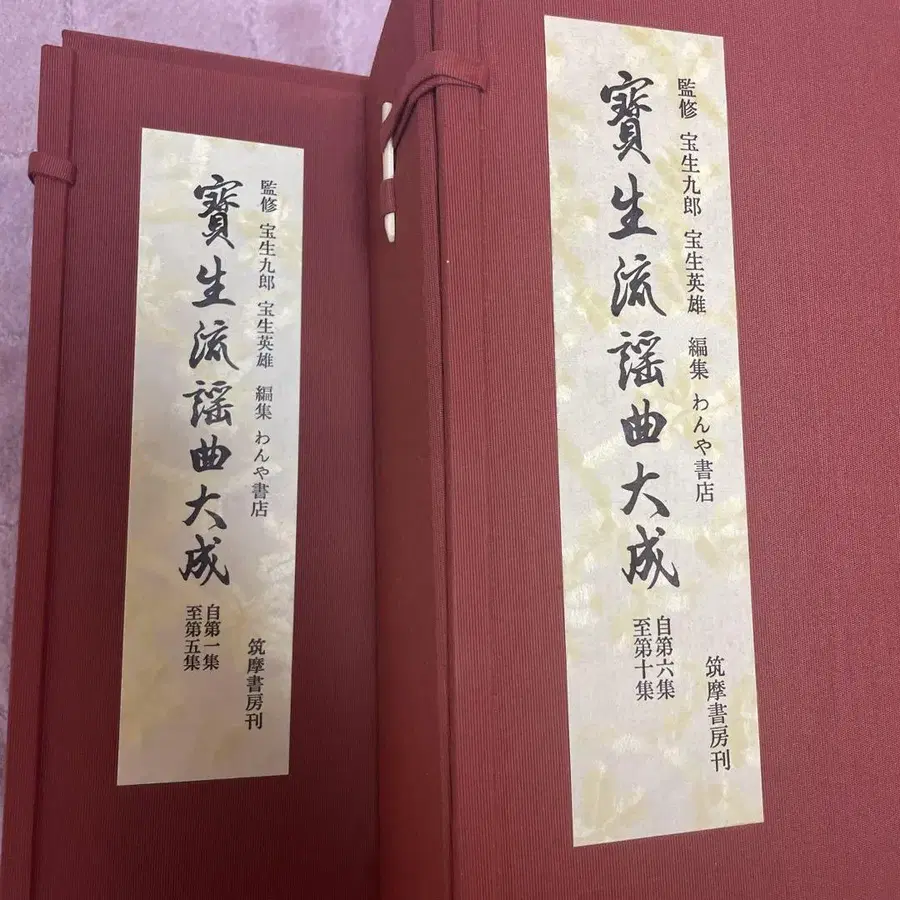 監修 宝生九郎 宝生英雄 編集 わんや書店
寳生流謡曲大成
自第六集
至第十集
筑摩書房刊
監修 宝生九郎 宝生英雄 編集 わんや書店
寳生流謡曲大成
自第一集
至第五集
筑摩書房刊